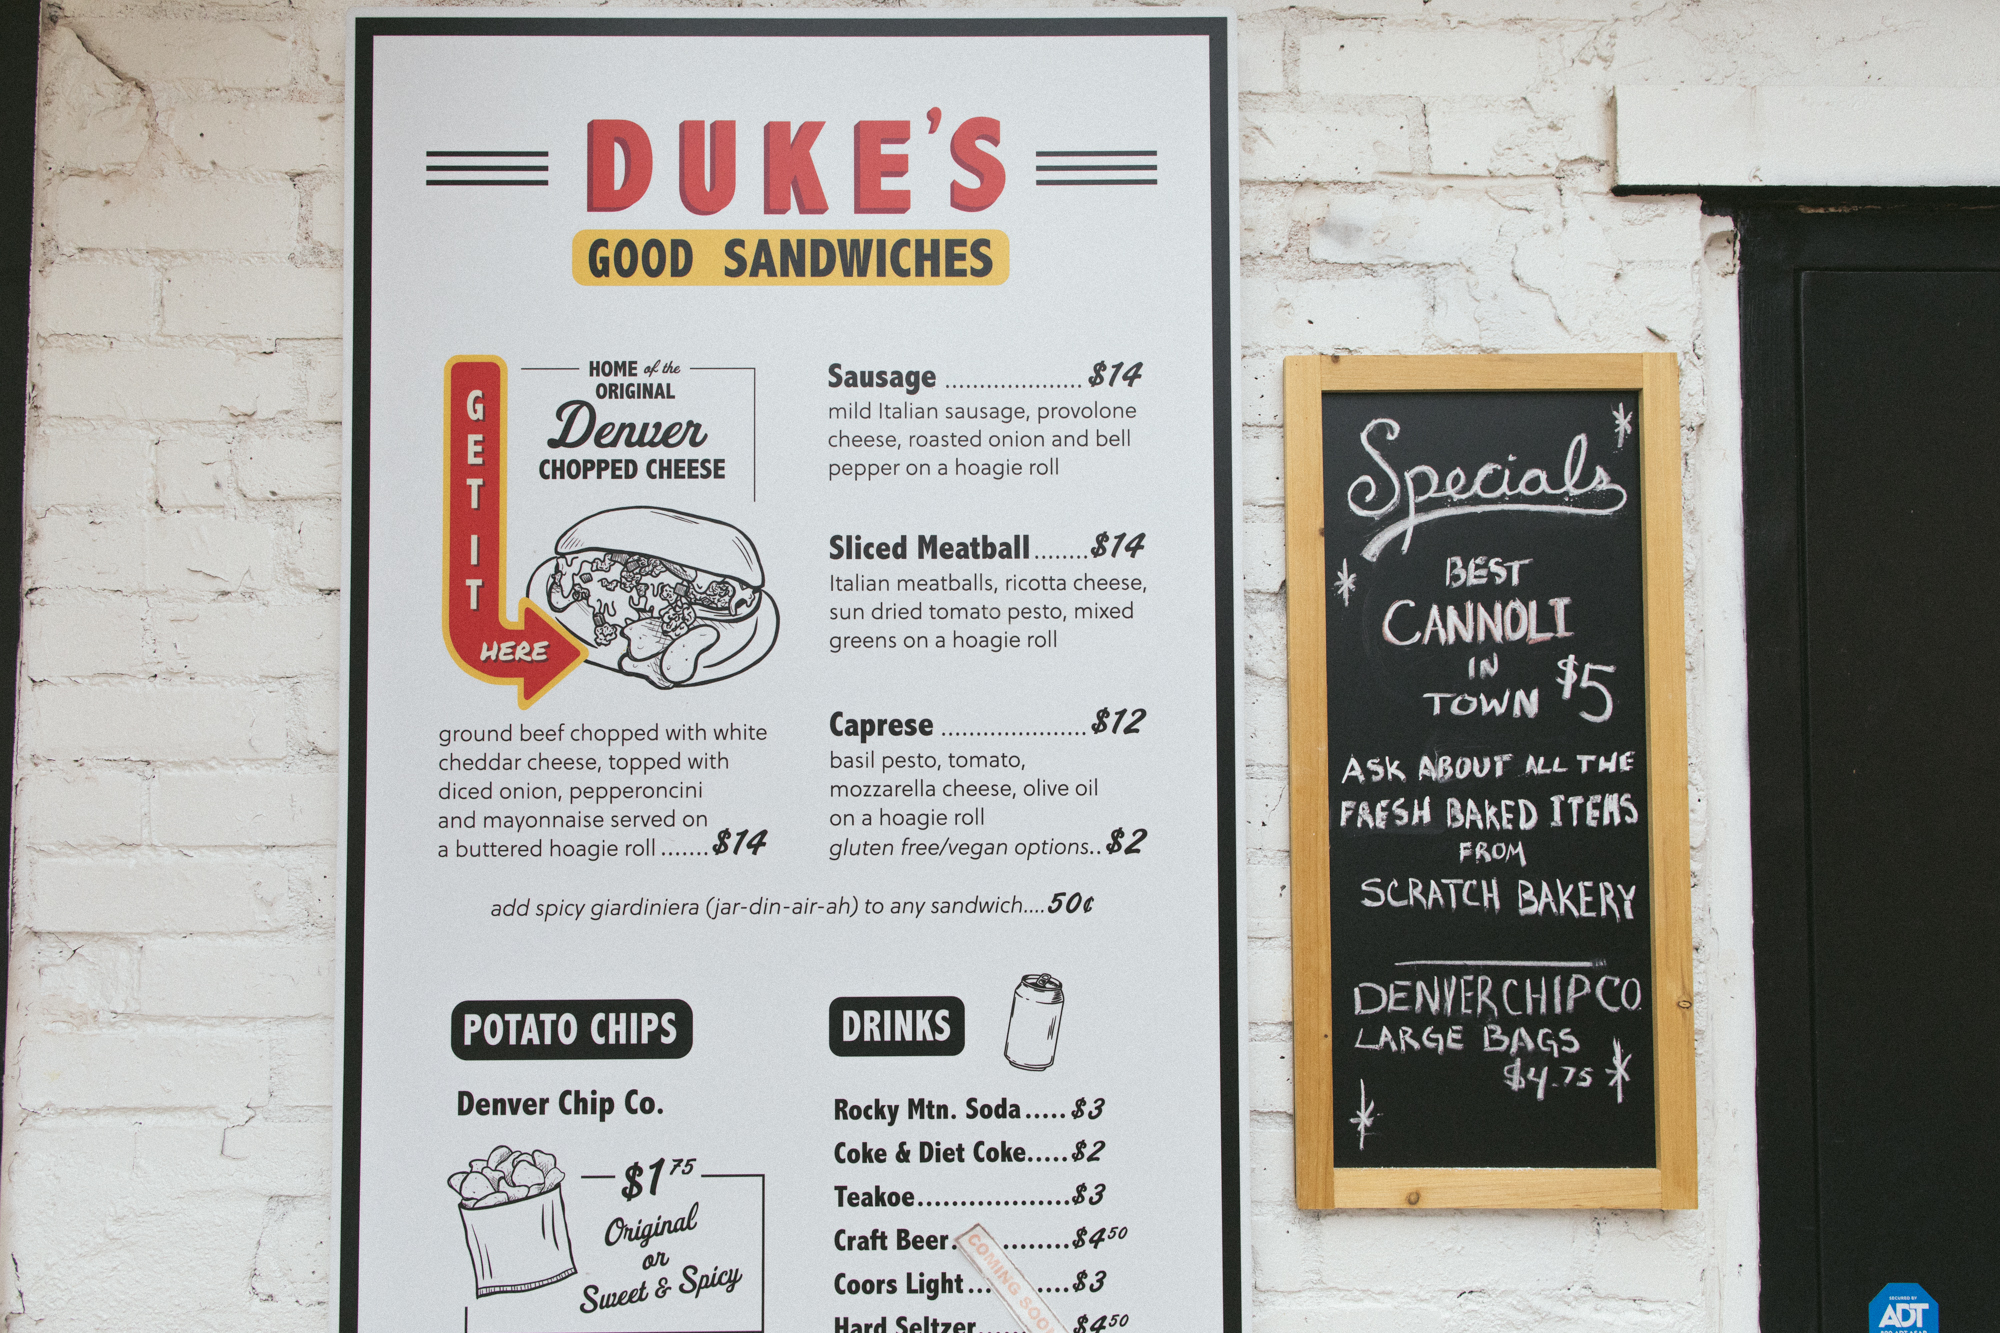 DUKE'S
GOOD SANDWICHES
GET IT
HERE
HOME of the
ORIGINAL
Denver
CHOPPED CHEESE
ground beef chopped with white
cheddar cheese, topped with
diced onion, pepperoncini
and mayonnaise served on
a buttered hoagie roll.......$14
Sausage ....................$14
mild Italian sausage, provolone
cheese, roasted onion and bell
pepper on a hoagie roll
Sliced Meatball........$14
Italian meatballs, ricotta cheese,
sun dried tomato pesto, mixed
greens on a hoagie roll
Caprese .....................$12
basil pesto, tomato,
mozzarella cheese, olive oil
on a hoagie roll
gluten free/vegan options..$2
add spicy giardiniera (jar-din-air-ah) to any sandwich....50¢
POTATO CHIPS
Denver Chip Co.
$1 75
Original
or
Sweet & Spicy
DRINKS
Rocky Mtn. Soda.....$3
Coke & Diet Coke.....$2
Teakoe..................$3
Craft Beer.........$4 50
Coors Light........$3
Hard Seltzer......$4 50
COMING SOON
Specials
BEST
CANNOLI
IN
TOWN $5
ASK ABOUT ALL THE
FRESH BAKED ITEMS
FROM
SCRATCH BAKERY
DENVER CHIP CO.
LARGE BAGS
$4.75
SECURED BY
ADT